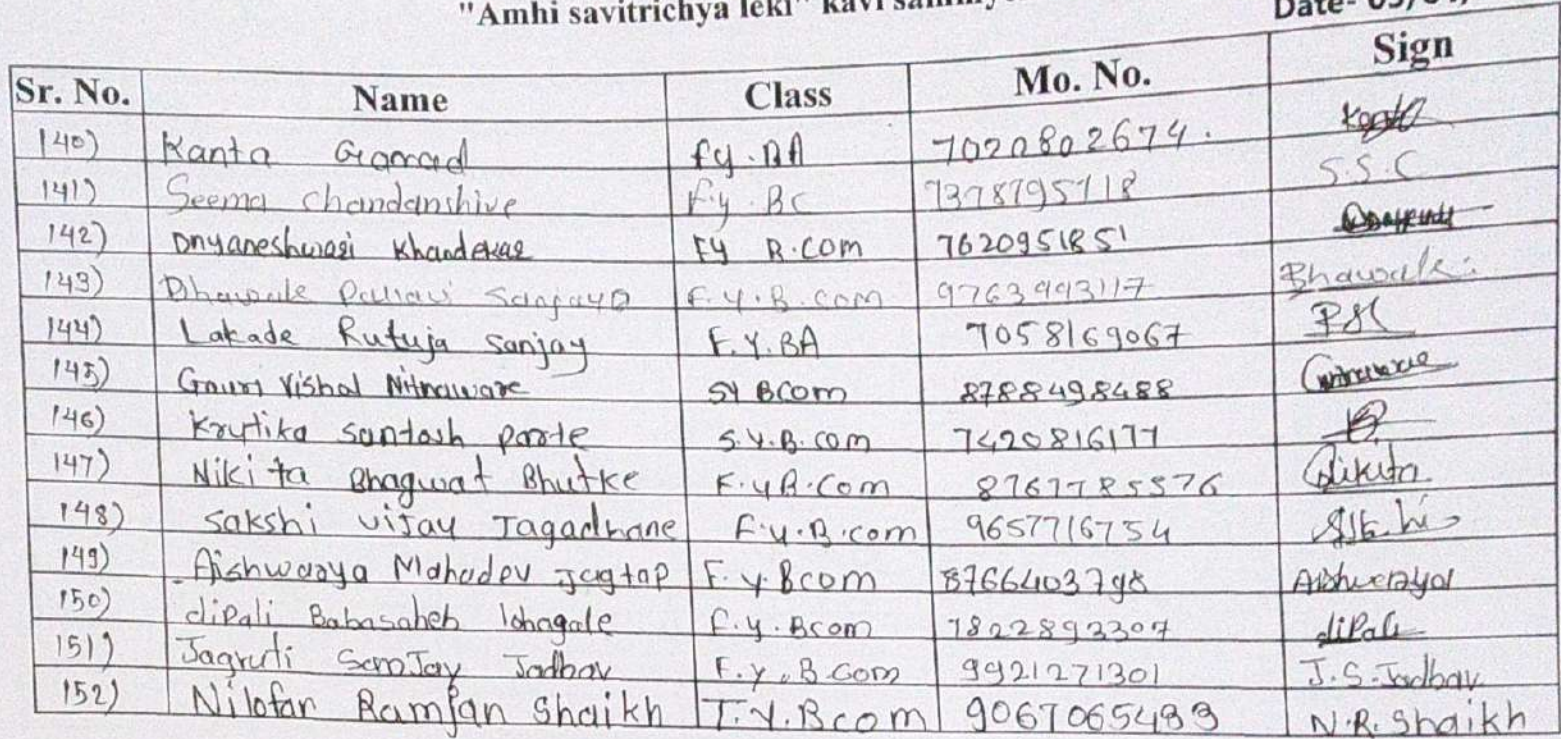 "Amhi savitrichya leki" kavi
Date-
Sr. No. Name Class Mo. No. Sign
140) Kanta fy.BA 7020802674. Kanta
141) Seema Chandanshive F.y.BC S.S.C
142) Dnyaneshwari Khandekar FY B.COM 7620951851
143) Dhawale Pallavi Sanjay F.Y.B.com Bhawale
144) Lakade Rutuja Sanjay F.Y.BA 7058169067
145) Gauri Vishal Nitnaware SY BCOM 8788498488
146) Krutika santosh parte S.Y.B.com 7420816177
147) Nikita Bhagwat Bhutke F.yB.Com 8767785576 Nikita
148) Sakshi vijay Jagadhane F.y.B.com 9657716754
149) Aishwarya Mahadev Jagtap F.y.Bcom 8766403798
150) dipali Babasaheb lohagale f.y.Bcom 7822893307 dipali
151) Jagruti Sanjay Jadhav F.Y.B.com 9921271301 J.S.Jadhav
152) Nilofar Ramjan Shaikh T.Y.Bcom 9067065483 N.R.Shaikh